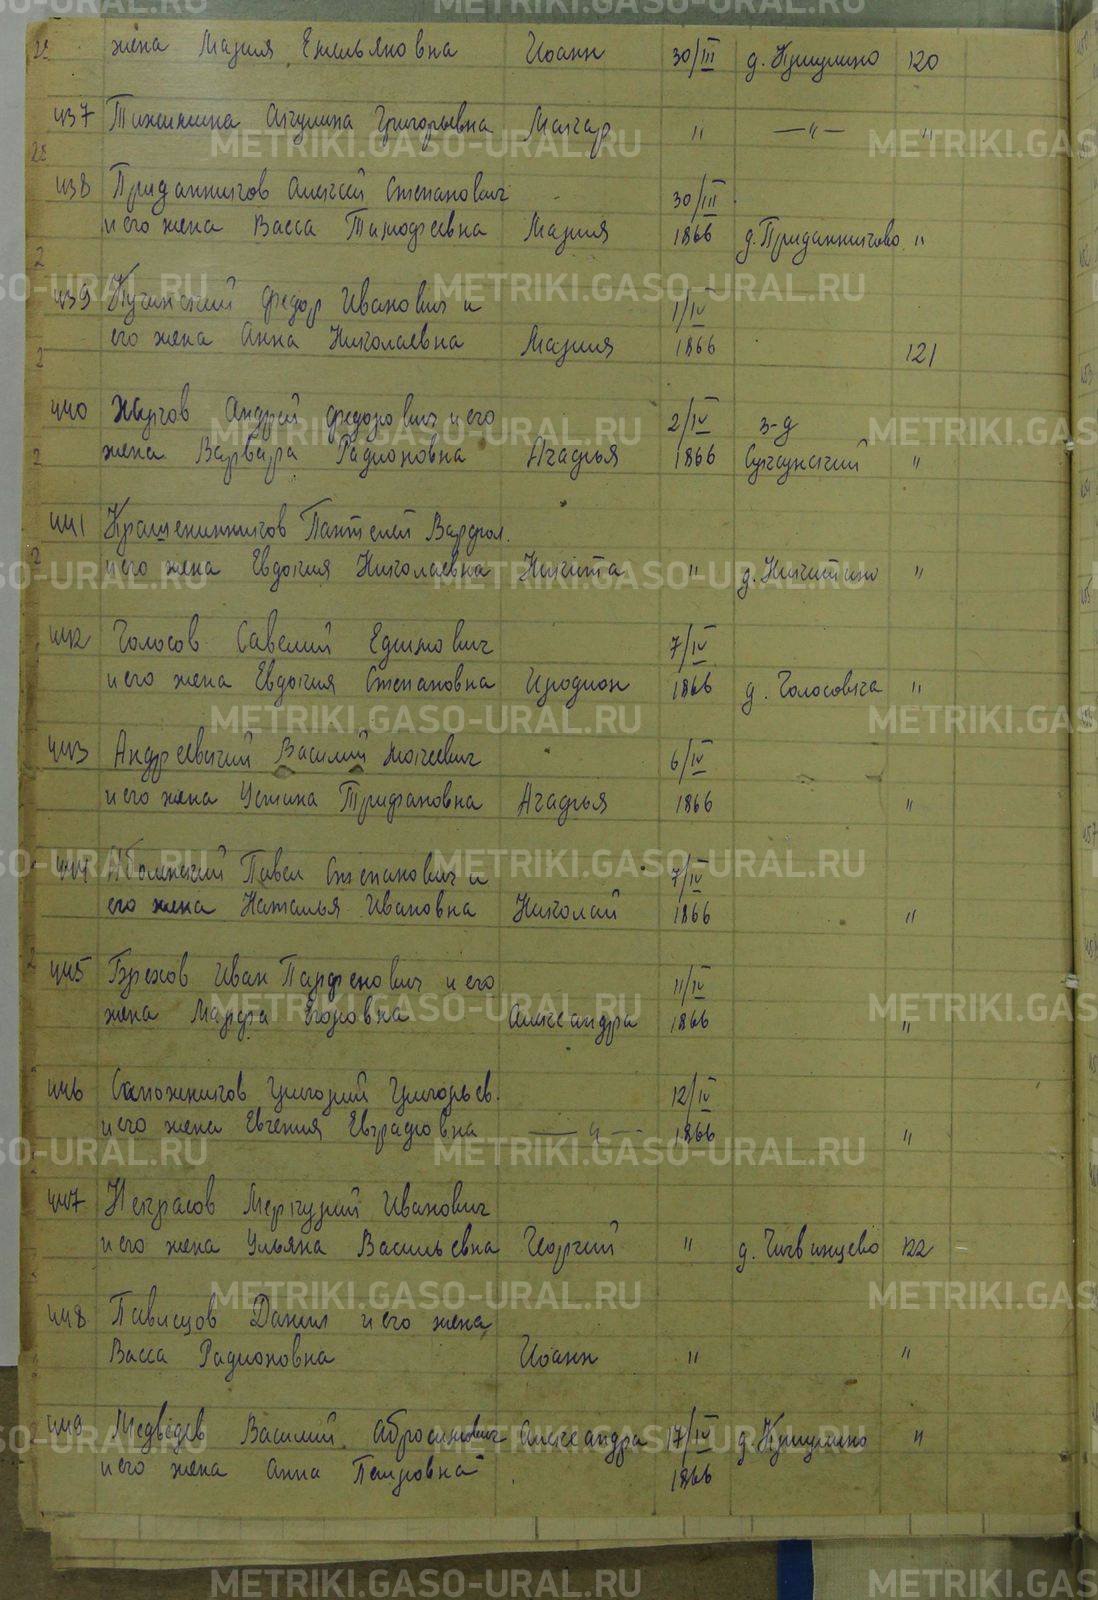 жена Мария Емельяновна Иоанн 30/III д. Криулино 120
437 Тихинина Акулина Григорьевна Макар " —"— "
438 Приданников Алексей Степанович 30/III
и его жена Васса Тимофеевна Мария 1866 д. Приданниково "
439 Кучинский Федор Иванович и 1/IV
его жена Анна Николаевна Мария 1866 121
440 Андрей Федорович и его 2/IV з-д
жена Варвара Радионовна Агафья 1866 Суксунский "
441 Крашенинников Пантелей Варфол.
и его жена Евдокия Николаевна Никита " д. Никитино "
442 Голосов Савелий Едимович 7/IV
и его жена Евдокия Степановна Иродион 1866 д. Голосовка "
443 Андреевский Василий Мокеевич 6/IV
и его жена Устина Трифановна Агафья 1866 "
444 Павел Степанович и 7/IV
его жена Наталья Ивановна Николай 1866 "
445 Брехов Иван Парфенович и его 11/IV
жена Марфа Егоровна Александра 1866 "
446 Сапожников Григорий Григорьев. 12/IV
и его жена Евгения Евграфовна —"— 1866 "
447 Некрасов Меркурий Иванович
и его жена Ульяна Васильевна Георгий " д. Чигвинцево 122
448 Данил и его жена
Васса Радионовна Иоанн " "
449 Медведев Василий Абросимович Александра 17/IV д. Криулино "
и его жена Анна Петровна 1866
METRIKI.GASO-URAL.RU